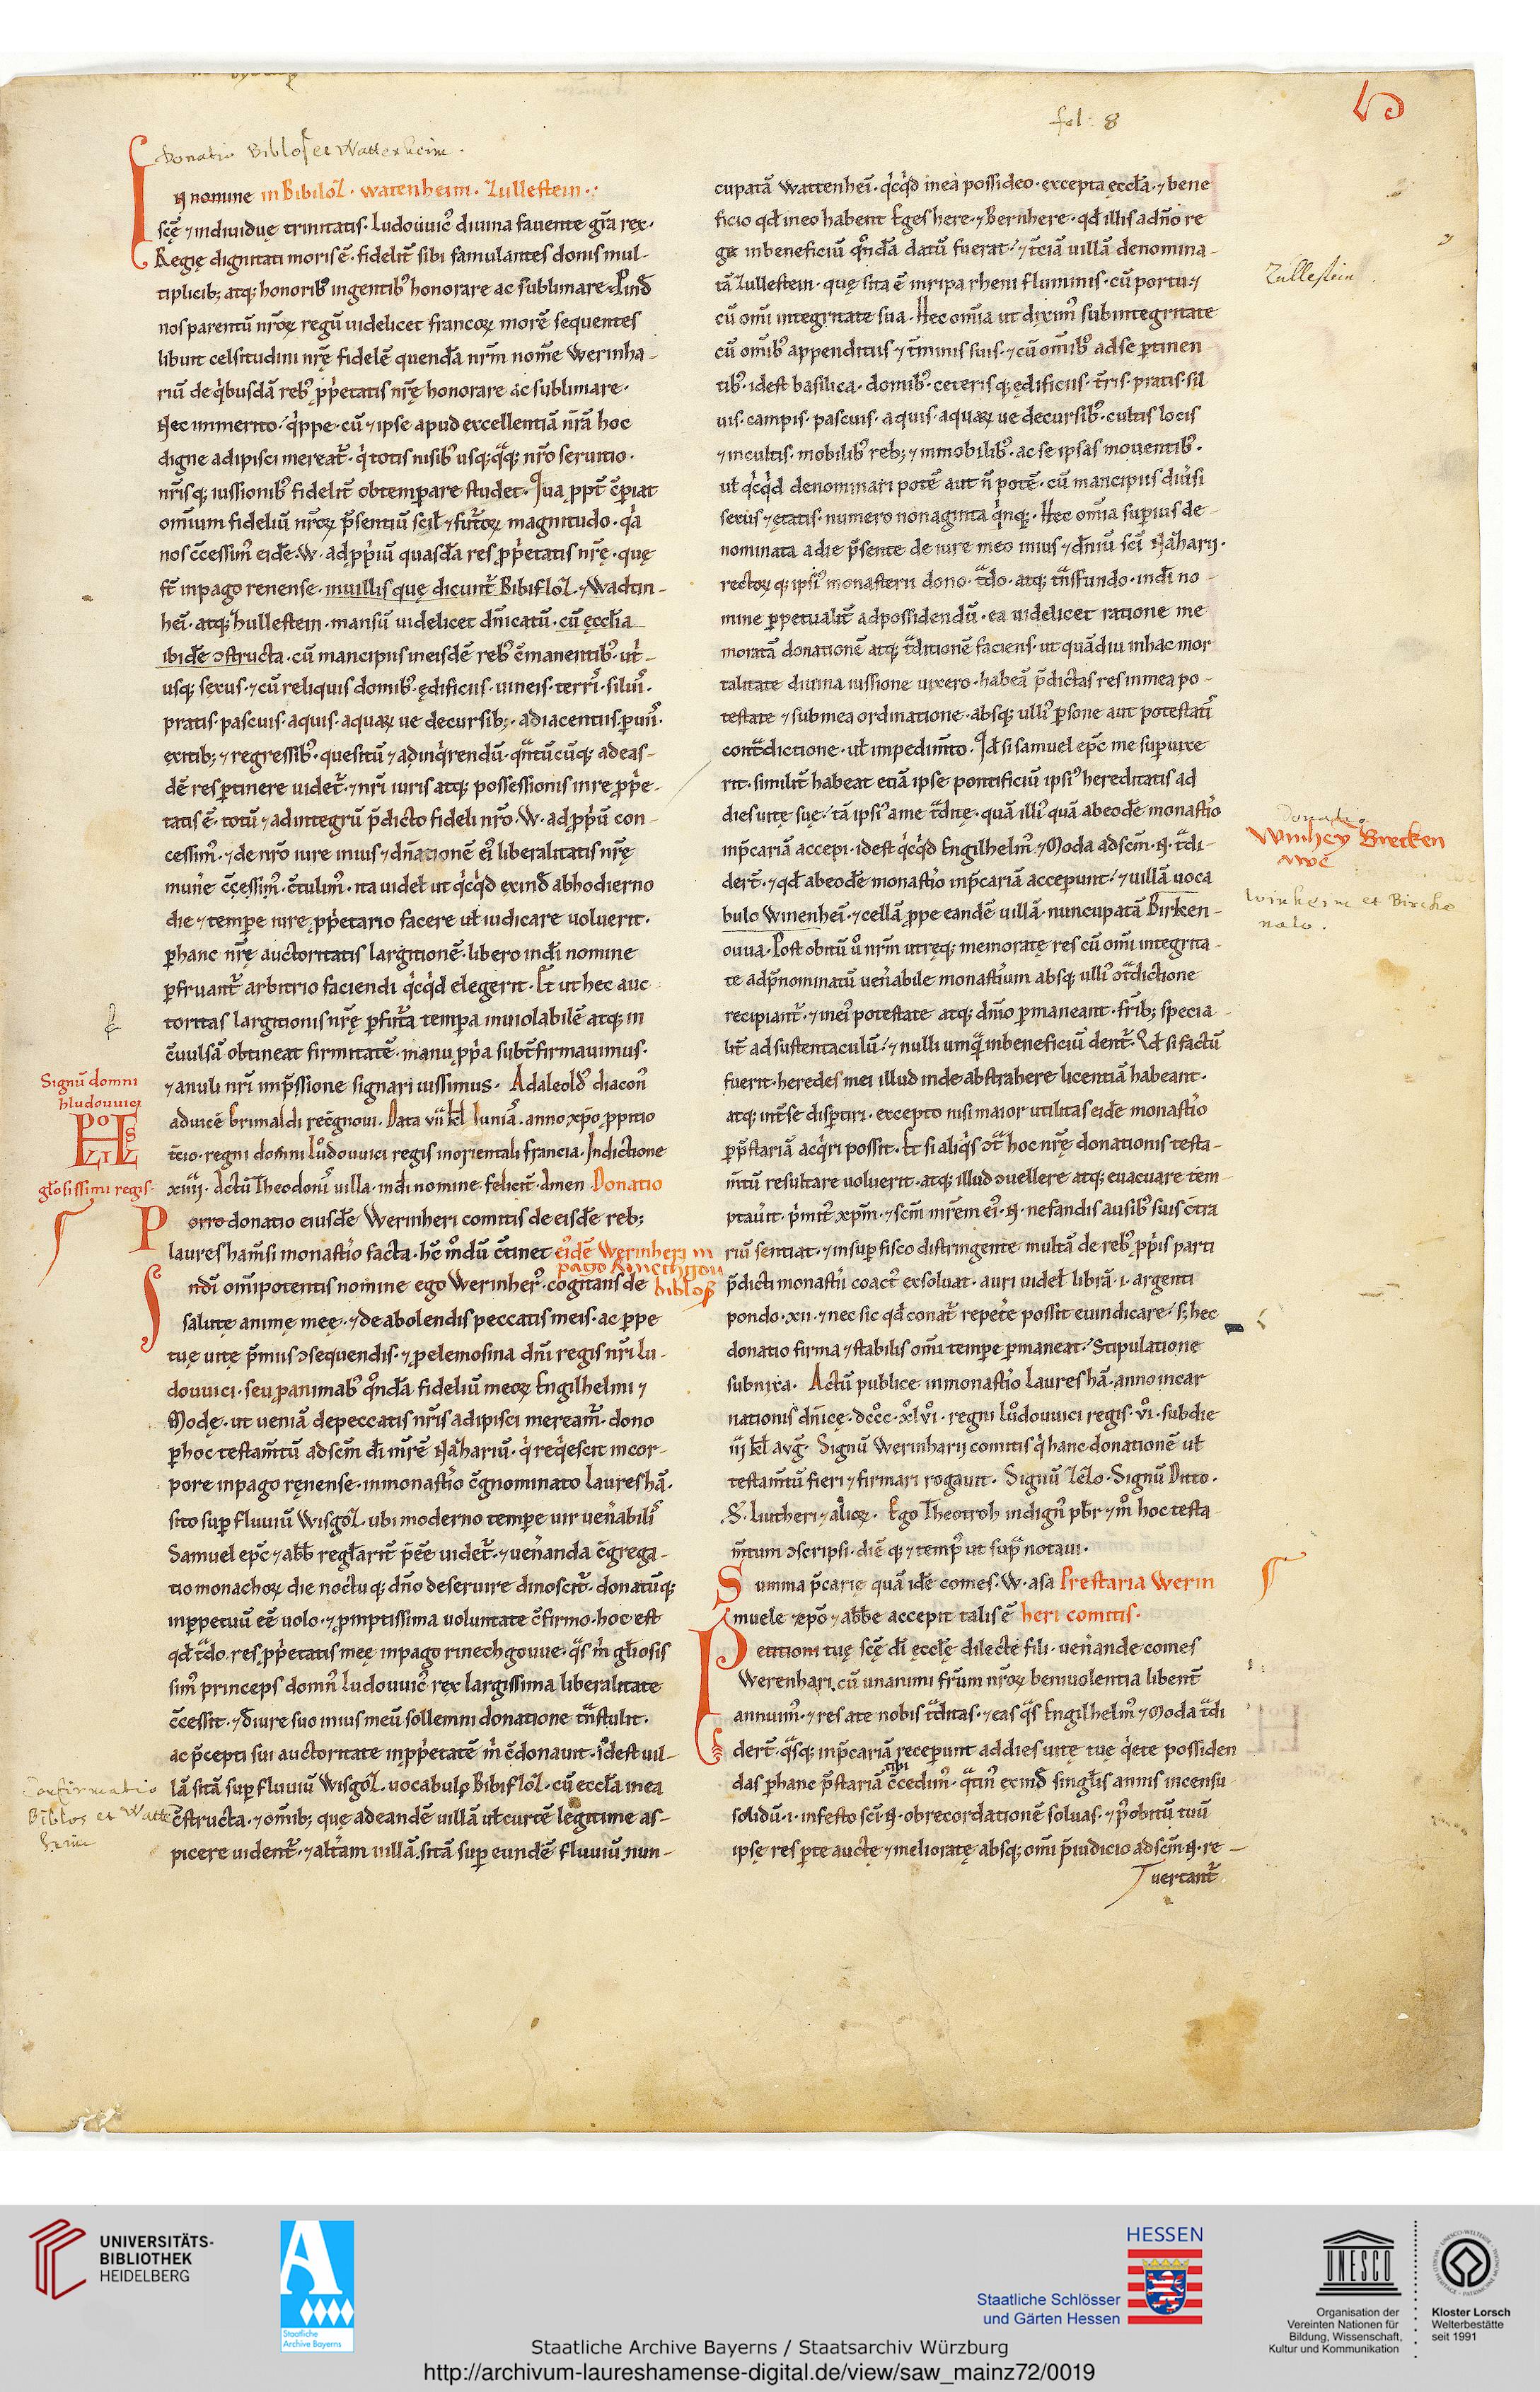 fol. 8
Donatio Biblos et Wattenheim.
N nomine in Bibiloz̄. watenheim. Zullestein.
scę ⁊ indiuiduę trinitatis. ludouuic᷒ diuina fauente gr̄a rex.
Regię dignitati moris ē. fidelit̄ sibi famulantes donis mul-
tiplicib; atq; honorib᷒ ingentib᷒ honorare ac sublimare. Pind̄
nos parentū nr̄oꝝ regū uidelicet francoꝝ morē sequentes
libuit celsitudini nr̄ę fidelē quendā nr̄m nom̄e Werinha-
riū de q̇busdā reb᷒ ꝓṗetatis nr̄ę honorare ac sublimare.
Nec immerito. q̇ppe. cū ⁊ ipse apud excellentiā nr̄ā hoc
digne adipisci mereat̄. q̇ totis nisib᷒ usq;q̄q; nr̄o seruitio.
nr̄isq; iussionib᷒ fidelit̄ obtemꝑare studet. Iua ꝓpt̄ c̄ꝑiat
om̄ium fideliū nr̄oꝝ p̄sentiū scił ⁊ fut̄oꝝ magnitudo. q̇a
nos c̄cessim᷒ eidē. W. ad ꝓṗiū quasdā res ꝓṗetatis nr̄ę. quę
st̄ in pago renense. in uillis quę dicunt̄ Bibifloz̄. ⁊ Wadtin-
heī. atq; hullestein. mansū uidelicet dn̄icatū. cū ęcclīa
ibidē ↄstructa. cū mancipiis in eisdē reb᷒ c̄manentib᷒. ut̓-
usq; sexus. ⁊ cū reliquis domib᷒. ędificiis. uineis. terrī. siluī.
pratis. pascuis. aquis. aquaꝝ ue decursib;. adiacentiis. ꝑuiī.
exitib; ⁊ regressib᷒. quesitū ⁊ ad inq̇rendū. q̄ntūcūq; ad eas-
dē res ꝑtinere uidet̄. ⁊ nr̄i iuris atq; possessionis in re ꝓṗe-
tatis ē. totū ⁊ ad integrū p̄dicto fideli nr̄o. W. ad ꝓṗū con-
cessim᷒. ⁊ de nr̄o iure in ius ⁊ dn̄ationē ei᷒ liberalitatis nr̄ę
mun̓e c̄cęssim᷒. c̄tulim᷒. ita uideł ut q̇cq̇d exind̄ ab hodierno
die ⁊ temꝑe iure ꝓṗetario facere uł iudicare uoluerit.
ꝑ hanc nr̄ę auctoritatis largitionē. libero in dī nomine
ꝑfruant̄ arbitrio faciendi q̇cq̇d elegerit. Et ut hec auc
toritas largitionis nr̄ę ꝑ fut̄a temꝑa inuiolabilē atq; in
c̄uulsā obtineat firmitatē. manu ꝓṗa subt̄firmauimus.
⁊ anuli nr̄i imp̄ssione signari iussimus. Adaleold᷒ diacon᷒
aduicē Grimaldi recg̅noui. Data vii kł Iuniā. anno xp̄o ꝓpitio
t̄cio. regni domni lůdouuici regis in orientali francia. Indictione
xiiii. Actū Theodonī uilla. in dī nomine felicit̄. Amen. Donatio
Porro donatio eiusdē Werinheri comitis de eisdē reb;
laureshamsi monast̓io facta. hc̄ modū c̄tinet eidē Werinheri in
pago Rinechgou
biblos
IN dī om̄ipotentis nomine ego Werinher᷒. cogitans de
salute animę meę. ⁊ de abolendis peccatis meis. ac ꝑpe
tuę uitę p̄mus ↄsequendis. ⁊ ꝓ elemosina dn̄i regis nr̄i lu-
douuici. seu ꝓ animab᷒ qo̊ndā fideliū meoꝝ Engilhelmi ⁊
Modę. ut ueniā de peccatis nr̄is adipisci mereamr̄. dono
ꝑ hoc testam̄tū ad scm̄ dī mr̄ē Naȥhariū. q̇ req̇escit in cor-
pore in pago ręnense. in monast̓io c̄gnominato laureshā.
sito sup̱ fluuiū Wisgoz̄. ubi moderno temꝑe uir uen̓abilī
Samuel epc̄ ⁊ abb̄ regłarit̄ p̄eē uidet̄. ⁊ uen̓anda c̄grega-
tio monachoꝝ die noctuq; dn̄o deseruire dinoscit̄. donatūq;
in ꝑpetuū eē uolo. ⁊ ꝓmptissima uoluntate c̄firmo. hoc est
qd̄ t̄do. res ꝓṗetatis meę in pago rinechgouue. q̄s m̊ głiosis
sim᷒ princeps domn᷒ ludouuic᷒ rex largissima liberalitate
c̄cessit. ⁊ d̄ iure suo in ius meū sollemni donatione t̄nstulit.
ac p̄cepti sui auctoritate in ꝓṗetatē m̊ c̄donauit. idest uil-
lā sitā sup̱ fluuiū Wisgoz̄. uocabulo Bibifloz̄. cū eccła in ea
c̄structa. ⁊ om̄ib; que ad eandē uillā uł curtē legitime as-
picere uident̄. ⁊ alt̓am uillā. sitā sup̱ eundē fluuiū. nun-
Signū domni
hludouuici
głosissimi regis.
Confirmatio
Biblos et Watte
heim
cupatā Wattenheī. q̇cq̇d in ea possideo. excepta ęccła. ⁊ bene
ficio qd̄ in eo habent Egeshere. ⁊ Bernhere. qd̄ illis a dn̄o re
ge in beneficiū qo̊ndā datū fuerat. ⁊ t̄ciā uillā denomina-
tā Zullestein. quę sita ē in ripa rheni fluminis. cū portu. ⁊
cū om̄i integritate sua. Hec om̄ia ut dixim᷒ sub integritate
cū om̄ib᷒ appenditiis ⁊ t̄minis suis. ⁊ cū om̄ib᷒ ad se ꝑtinen-
tib᷒. idest basilica. domib᷒. ceterisq; ędificiis. t̄ris. pratis. sil
uis. campis. pascuis. aquis. aquaꝝ ue decursib᷒. cultis locis
⁊ incultis. mobilib᷒ reb; ⁊ inmobilib᷒. ac se ipsas mouentib᷒.
uł q̇cq̇d denominari potē aut n̄ potē. cū mancipiis diu̓si
sexus ⁊ ętatis. numero nonaginta q̇nq;. Hec om̄ia sup̱ius de-
nominata a die p̄sente de iure meo in ius ⁊ dn̄iū scī Naȥharij.
rectoꝝq; ipsi᷒ monasterii dono. t̄do. atq; t̄nsfundo. in dī no-
mine ꝑpetualit̄ ad possidendū. ea uidelicet ratione me
moratā donationē atq; t̄ditionē faciens. ut quādiu in hac mor
talitate diuina iussione uixero. habeā p̄dictas res in mea po-
testate ⁊ sub mea ordinatione. absq; ulli᷒ ꝑsone aut potestatī
cont̄dictione. uł impedim̄to. Qd̄ si samuel epc̄ me sup̱uixe
rit. similit̄ habeat etiā ipse pontificiū ipsi᷒ hereditatis ad
dies uitę suę. tā ipsi᷒ a me t̄ditę. quā illi᷒ quā ab eodē monast̓io
in p̄cariā accepi. idest q̇cq̇d Engilhelm᷒ ⁊ Moda ad scm̄. N. t̄di-
dert̄. ⁊ qd̄ ab eodē monast̓io in p̄cariā acceꝑunt. ⁊ uillā uoca
bulo Winenheī. ⁊ cellā ꝓpe eandē uillā. nuncupatā Birken-
ouua. Post obitū ů nr̄m utręq; memoratę res cū om̄i integrita-
te ad p̄nominatū uen̓abile monast̓ium absq; ulli᷒ ↄt̄dictione
recipiant̄. ⁊ in ei᷒ potestate atq; dn̄io ꝑmaneant. fr̄ib; specia
lit̄ ad sustentaculū. ⁊ nulli umq̄ in beneficiū dent̄. Qd̄ si factū
fuerit. heredes mei illud inde abstrahere licentiā habeant.
atq; int̓ se disꝑtiri. excepto nisi maior utilitas eidē monast̓io
ꝑ p̄stariā acq̇ri possit. Et si aliq̇s ↄt̄ hoc nr̄ę donationis testa-
m̄tū resultare uoluerit. atq; illud ↄuellere atq; euacuare tem-
ptau̓it. p̓mit̄ xp̄m. ⁊ scm̄ mr̄em ei᷒. N. nefandis ausib᷒ suis c̄t̓a
riū sentiat. ⁊ insup̱ fisco distringente multā de reb᷒ ꝓṗis parti
p̄dicti monast̓ii coact᷒ exsoluat. auri uideł librā. i. argenti
pondo. xii. ⁊ nec sic qd̄ conat̄ repet̓e possit euindicare. s; hec
donatio firma ⁊ stabilis om̄i temꝑe ꝑmaneat. Stipulatione
subnixa. Actū publice in monast̓io laureshā. anno incar
nationis dn̄icę. dccc. xlvi. regni lůdouuici regis. vi. sub die
iij kł avg̅. Signū Werinharij comitis q̇ hanc donationē uł
testam̄tū fieri ⁊ firmari rogauit. Signū Zēlo. Signū Ditto.
S̄. Liutheri ⁊ alioꝝ. Ego Theotroh indign᷒ pb̄r ⁊ m̊ hoc testa
m̄tum ↄscripsi. diē q; ⁊ temp᷒ ut sup̱ notaui.
Summa p̄carię quā idē comes. W. a sa Prestaria Werin
muele epō ⁊ abb̄e accepit talis ē heri comitis.
Petitioni tuę scę dī ęcclę dilecte fili. uen̓ande comes
Werenhari. cū unanimi fr̄um nr̄oꝝ beniuolentia libent̄
annuim᷒. ⁊ res a te nobis t̄ditas. ⁊ eas q̄s Engilhelm᷒ ⁊ Moda t̄di
dert̄. q̄sq; in p̄cariā receꝑunt ad dies uitę tuę q̇ete possiden
das ꝑ hanc p̄stariā tibi c̄cedim᷒. q̄tin᷒ exind̄ singłis annis in censu
solidū. i. in festo scī. N. ob recordationē soluas. ⁊ p᷒ obitū tuū
ipsę res ꝑte auctę ⁊ melioratę absq; om̄i p̄iudicio ad scm̄. N. re-
uertant̄
Zullestein
donatio
Winhey Brecken
awe
Winheim et Birche
nalo.
UNIVERSITÄTS-
BIBLIOTHEK
HEIDELBERG
Staatliche
Archive Bayerns
HESSEN
Staatliche Schlösser
und Gärten Hessen
UNESCO
Organisation der
Vereinten Nationen für
Bildung, Wissenschaft,
Kultur und Kommunikation
Kloster Lorsch
Welterbestätte
seit 1991
Staatliche Archive Bayerns / Staatsarchiv Würzburg
http://archivum-laureshamense-digital.de/view/saw_mainz72/0019